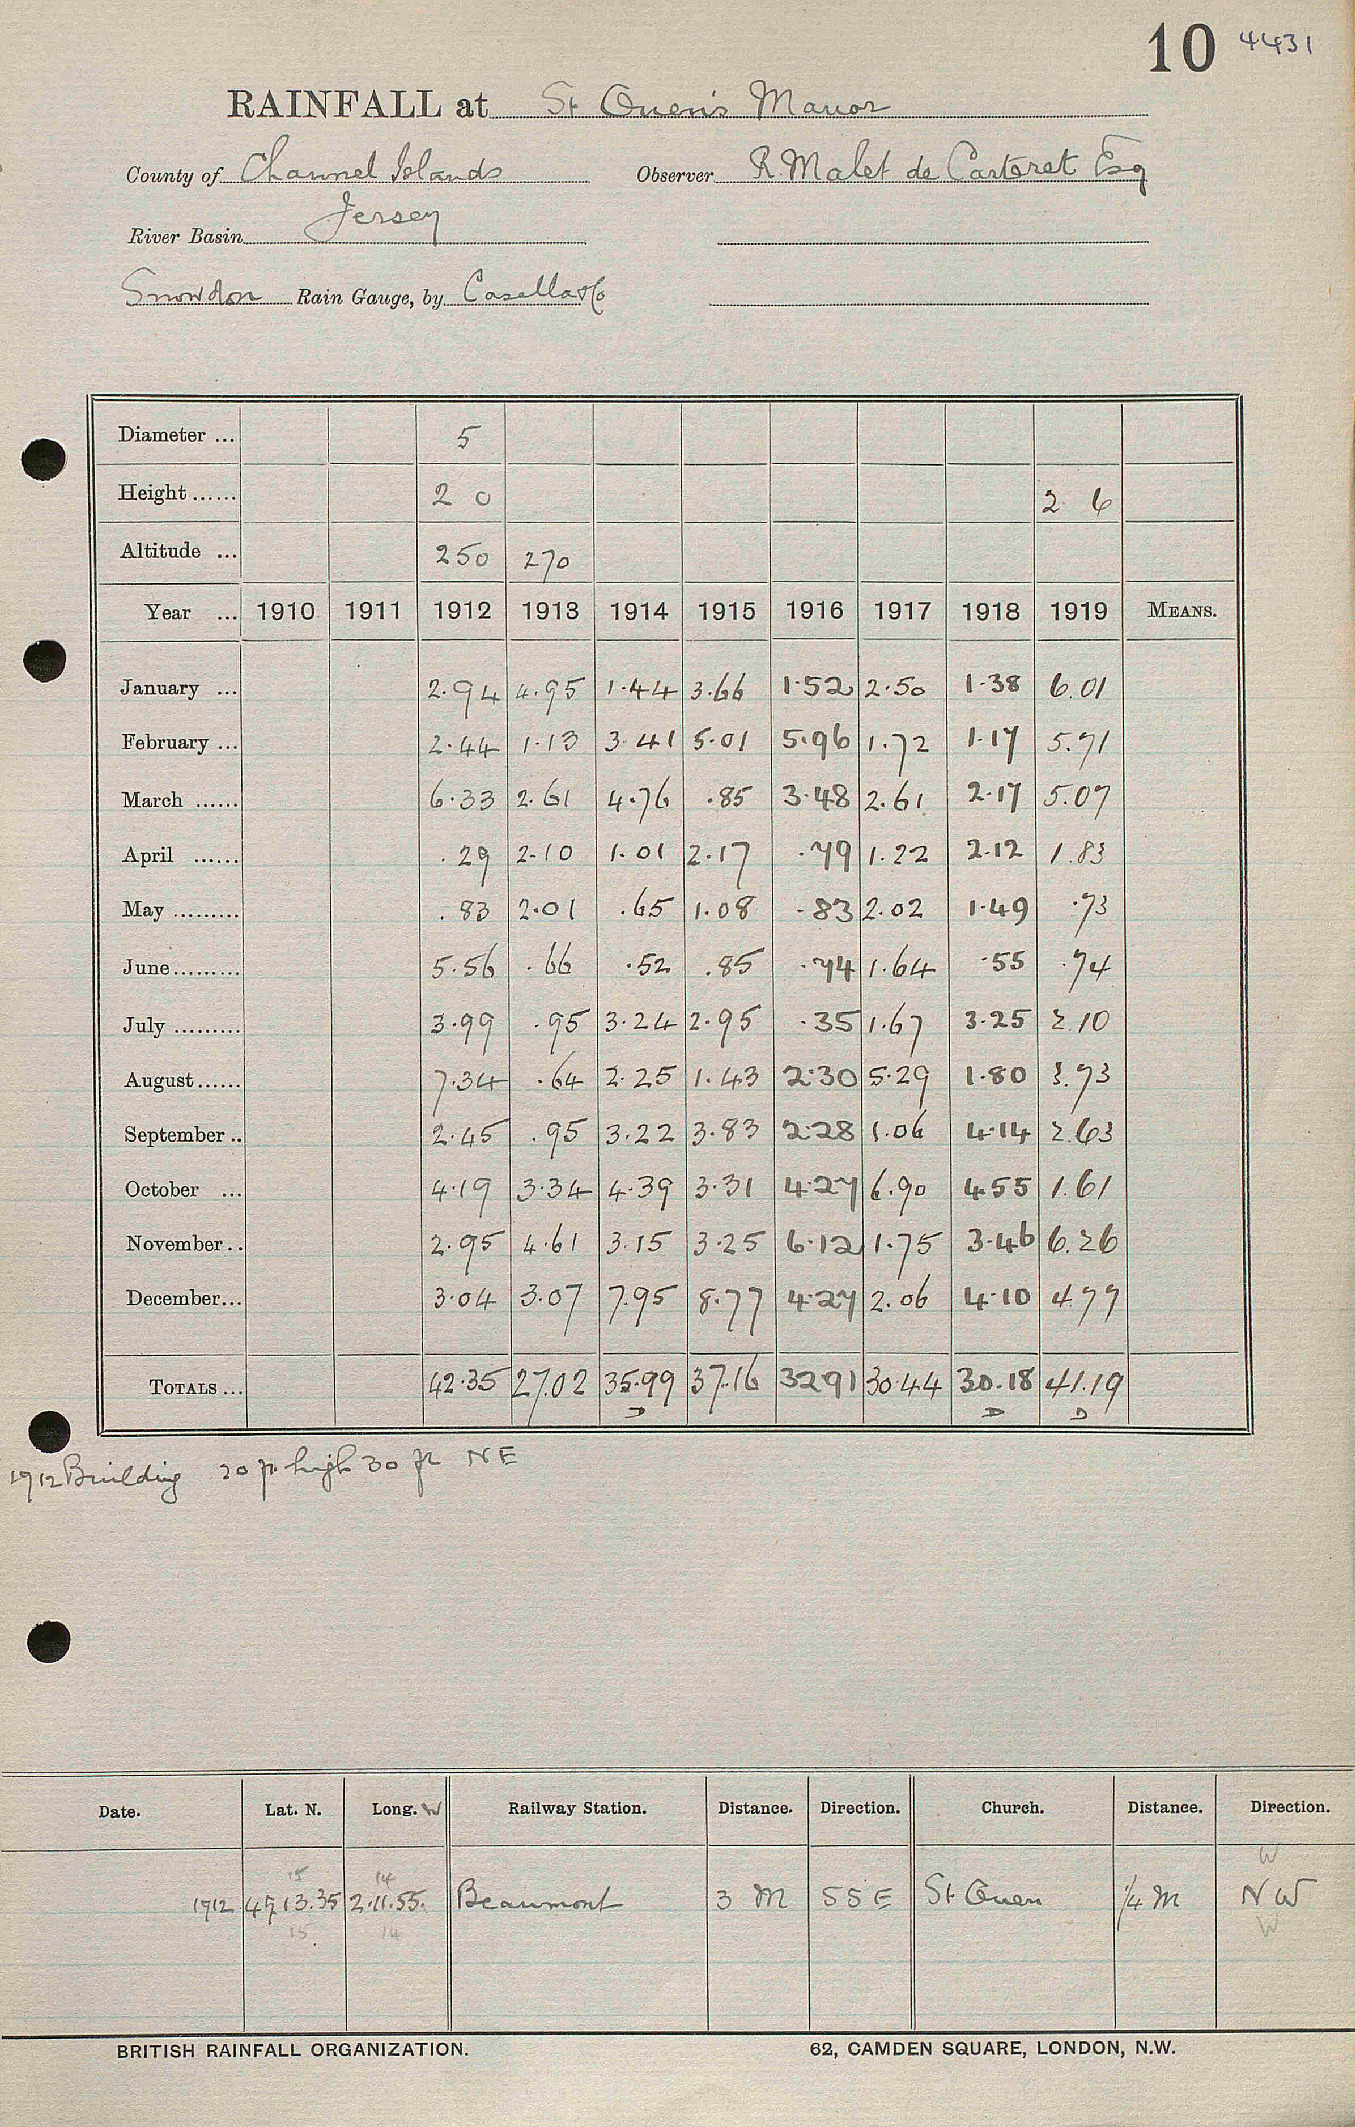 10 4431
RAINFALL at St Ouen's Manor
County of Channel Islands Observer R. Malet de Carteret Esq
River Basin Jersey
Snowdon Rain Gauge, by Casella & Co
Diameter ... 5
Height ...... 2 0 2 6
Altitude ... 250 270
Year ... 1910 1911 1912 1913 1914 1915 1916 1917 1918 1919 MEANS.
January ... 2.94 4.95 1.44 3.66 1.52 2.50 1.38 6.01
February ... 2.44 1.13 3.41 5.01 5.96 1.72 1.17 5.71
March ...... 6.33 2.61 4.76 .85 3.48 2.61 2.17 5.07
April ...... .29 2.10 1.01 2.17 .79 1.22 2.12 1.83
May ......... .83 2.01 .65 1.08 .83 2.02 1.49 .73
June ......... 5.56 .66 .52 .85 .74 1.64 .55 .74
July ......... 3.99 .95 3.24 2.95 .35 1.67 3.25 2.10
August ...... 7.34 .64 2.25 1.43 2.30 5.29 1.80 3.73
September .. 2.45 .95 3.22 3.83 2.28 1.06 4.14 2.63
October ... 4.19 3.34 4.39 3.31 4.27 6.90 4.55 1.61
November .. 2.95 4.61 3.15 3.25 6.12 1.75 3.46 6.26
December ... 3.04 3.07 7.95 8.77 4.27 2.06 4.10 4.77
TOTALS ... 42.35 27.02 35.99 37.16 32.91 30.44 30.18 41.19
D D D
1912 Building 20 ft high 30 ft NE
Date. Lat. N. Long. W Railway Station. Distance. Direction. Church. Distance. Direction.
15 14 W
1912 49.13.35 2.11.55. Beaumont 3 M SSE St Ouen 1/4 M NW
15 14 W
BRITISH RAINFALL ORGANIZATION. 62, CAMDEN SQUARE, LONDON, N.W.